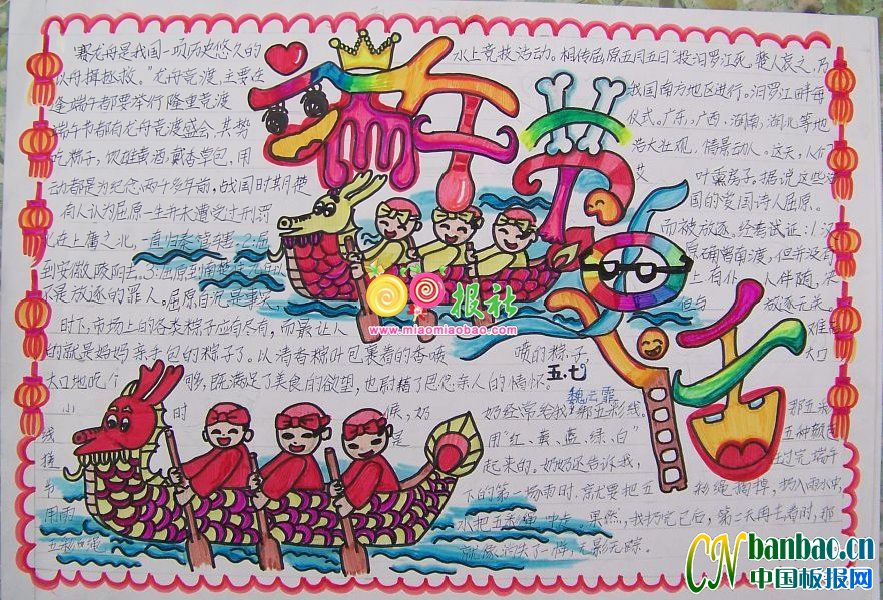 赛龙舟是我国一项历史悠久的 水上竞技活动。相传屈原五月五日"投汨罗江死,楚人哀之,乃
以舟楫拯救。"龙舟竞渡,主要在 我国南方地区进行。汨罗江畔每
逢端午都要举行隆重竞渡 仪式。广东、广西、湖南、湖北等地
端午节都有龙舟竞渡盛会,其势 浩大壮观,情景动人。这天,人们
吃粽子,饮雄黄酒,戴香草包,用 艾 叶熏房子。据说这些活
动都是为纪念两千多年前,战国时期楚 国的爱国诗人屈原。
有人认为屈原一生并未遭受过刑罚 而被放逐。经考试证:1.汉
不是放逐的罪人。屈原自沉是事实, 但与 放逐无关。
时下,市场上的各类粽子应有尽有,而最让人 难忘
的就是妈妈亲手包的粽子了。以清香粽叶包裹着的香喷 喷的粽子, 大口
大口地吃个 够,既满足了美食的欲望,也慰藉了思念亲人的情怀。
五.七
魏云霏
小 时 候,奶 奶经常给我绑五彩线, 那五彩
线 是 用"红、黄、蓝、绿、白" 五种颜色
搓 起来的。奶奶还告诉我, 过完端午
节 下的第一场雨时,就要把五 彩绳摘掉,扔入雨水中,
用雨 水把五彩绳冲走。果然,我扔完之后,第二天再去看时,那
五彩绳 就像消失了一样,无影无踪。
端午节
报社
www.miaomiaobao.com
CN banbao.cn
中国板报网